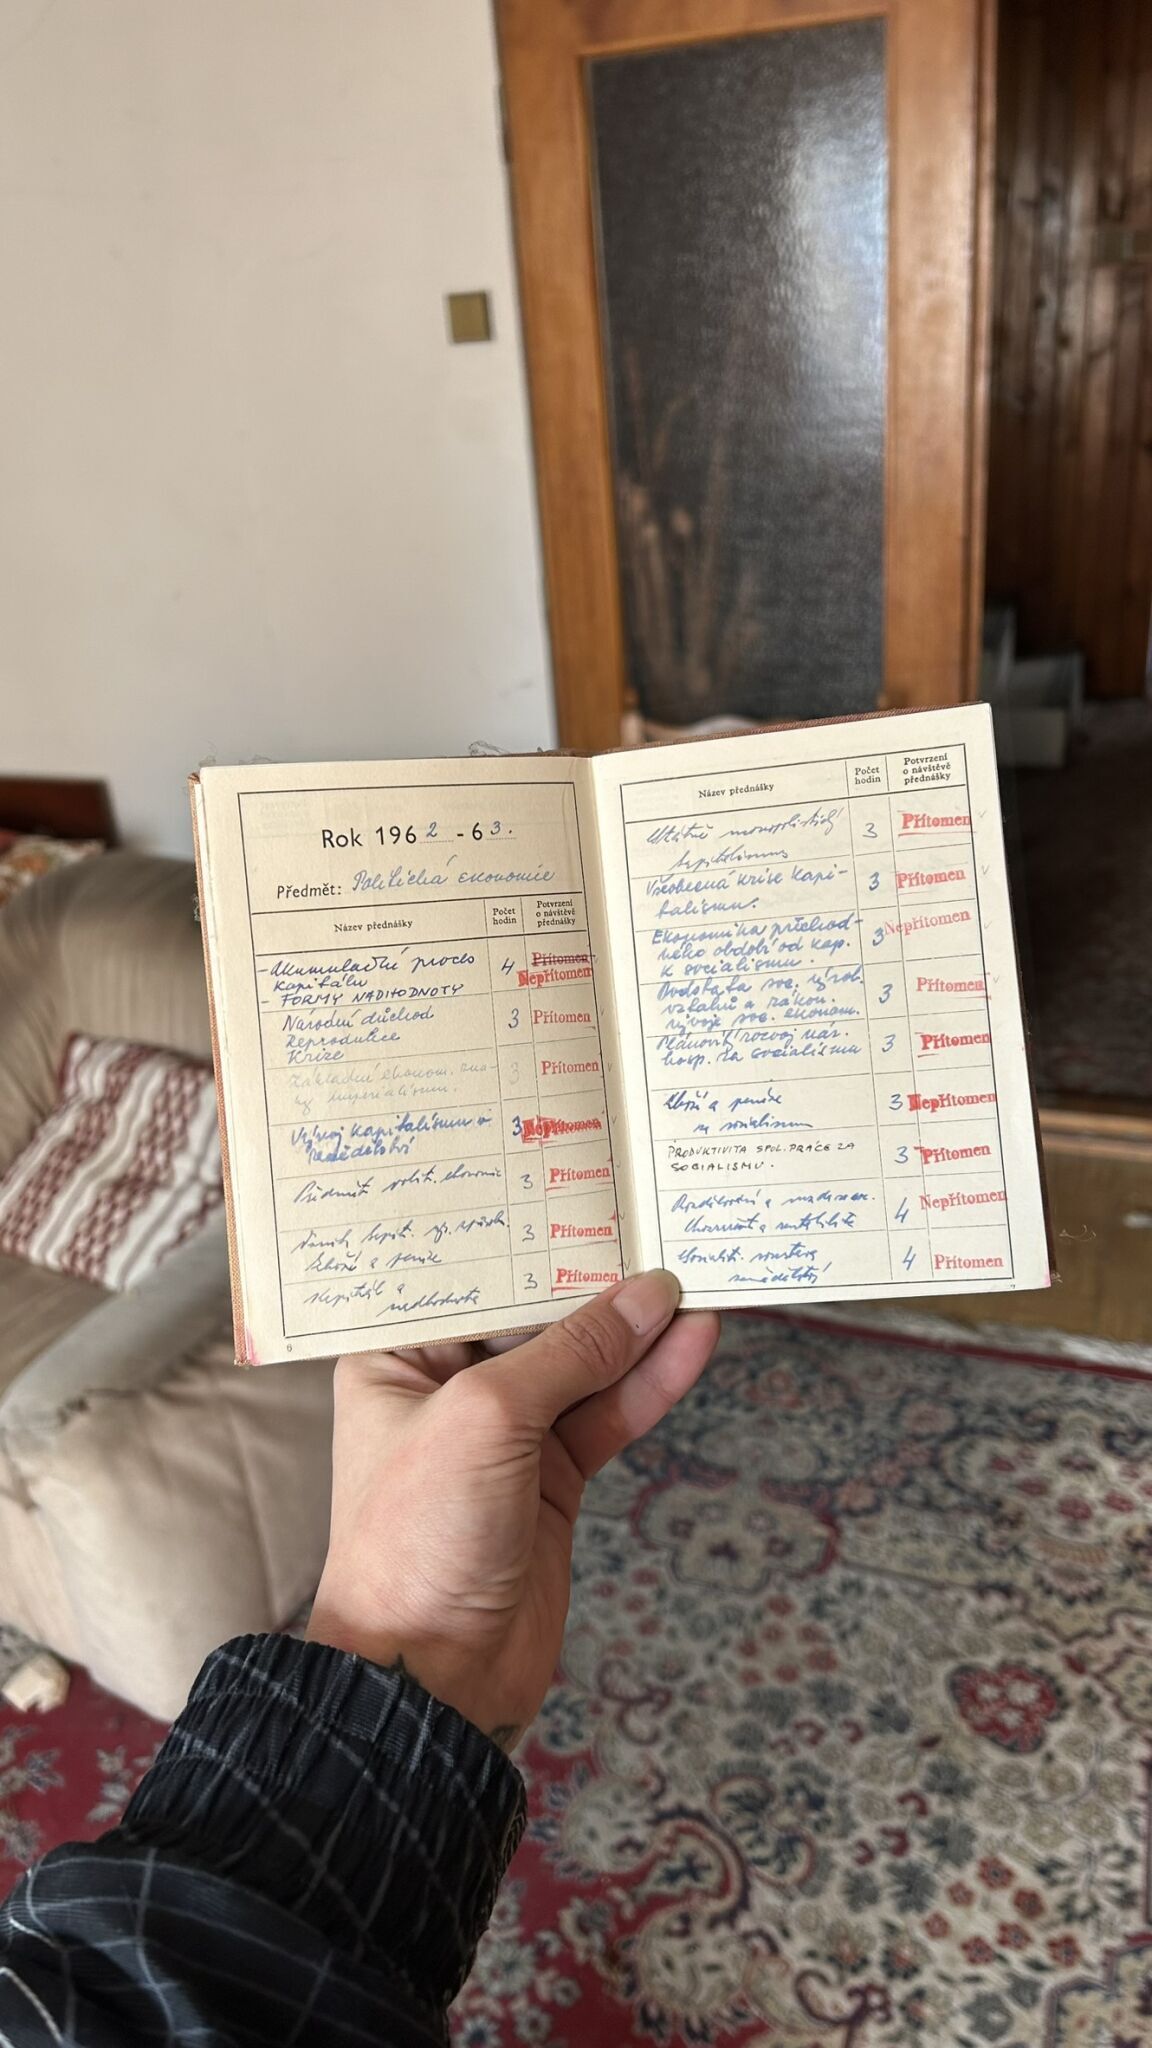 Rok 1962 - 63.
Předmět: Politická ekonomie
Název přednášky
Počet hodin
Potvrzení o návštěvě přednášky
- Akumulační proces
kapitálu
- FORMY NADHODNOTY
4
Přítomen
Nepřítomen
Národní důchod
Reprodukce
Krize
3
Přítomen
Základní ekonom. zna-
ky imperialismu.
3
Přítomen
Vývoj kapitalismu v
zemědělství
3
Nepřítomen
Předmět polit. ekonomie
3
Přítomen
kapit.
Zboží a peníze
3
Přítomen
Kapitál a
nadhodnota
3
Přítomen
6
Název přednášky
Počet hodin
Potvrzení o návštěvě přednášky
Státně monopolistický
kapitalismus
3
Přítomen
Všeobecná krize kapi-
talismu.
3
Přítomen
Ekonomika přechod-
ného období od kap.
k socialismu.
3
Nepřítomen
Podstata soc. výrob.
vztahů a zákon.
vývoje soc. ekonom.
3
Přítomen
Plánovitý rozvoj nár.
hosp. za socialismu
3
Přítomen
Zboží a peníze
za socialismu
3
Nepřítomen
PRODUKTIVITA SPOL. PRÁCE ZA
SOCIALISMU.
3
Přítomen
a rentabilita
4
Nepřítomen
Socialist. soustava
zemědělství
4
Přítomen